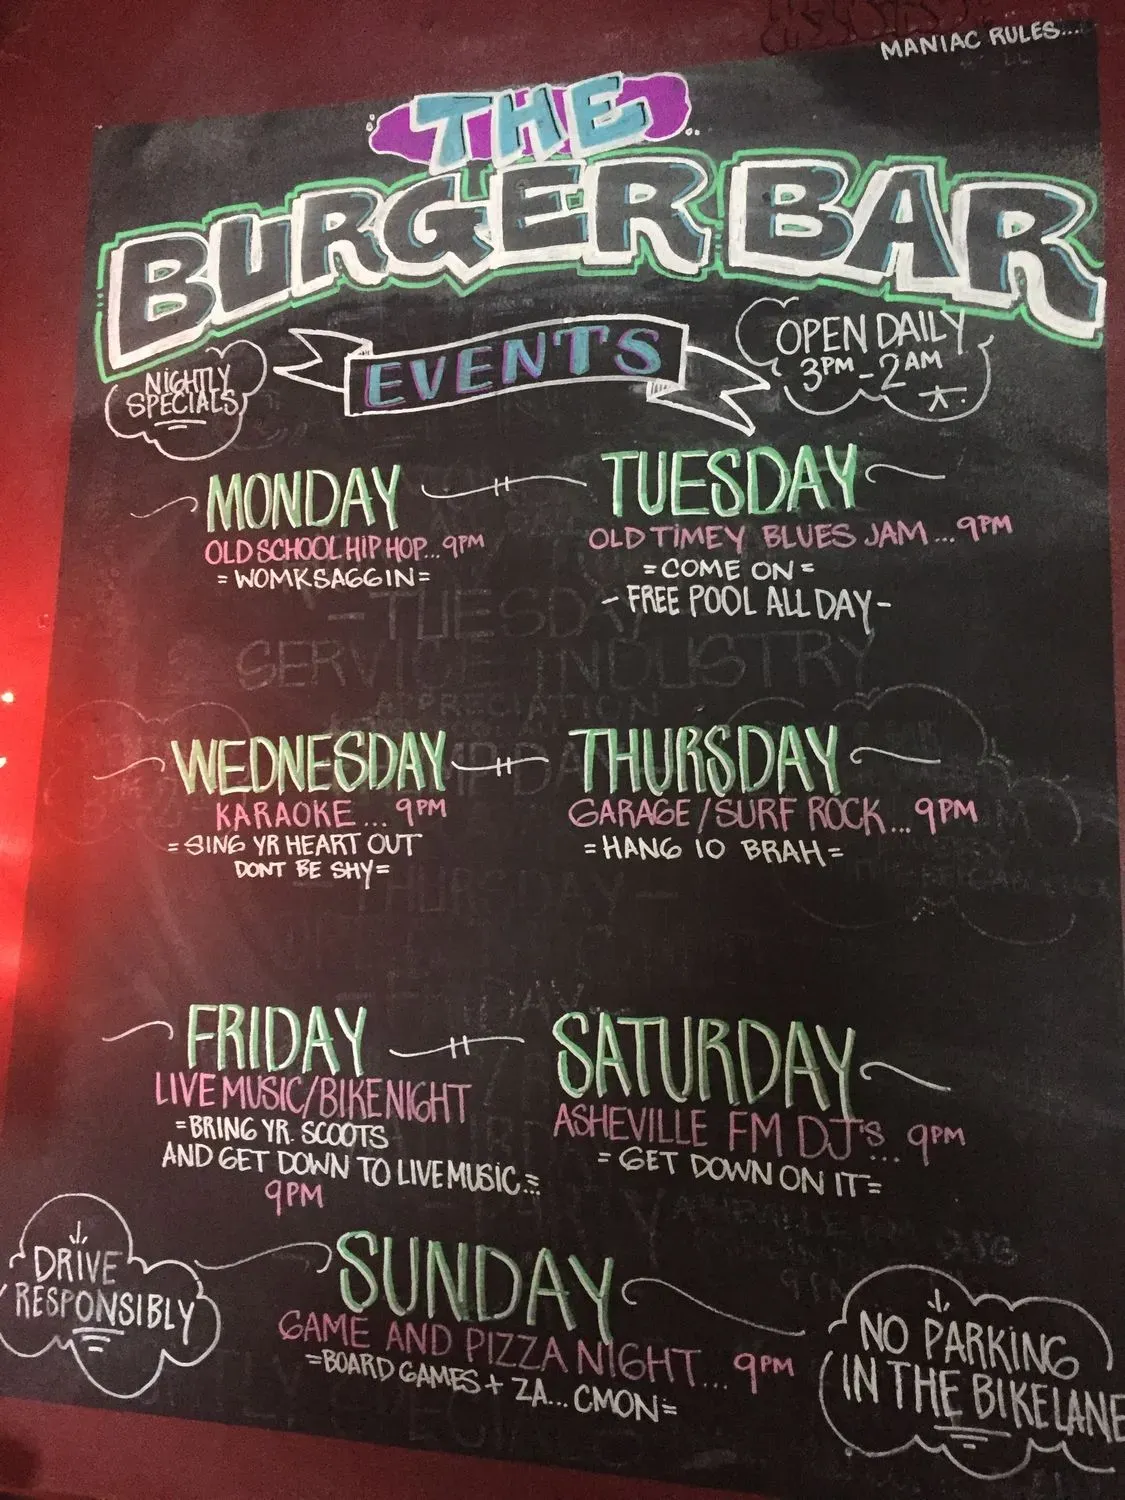 MANIAC RULES...
THE
BURGER BAR
EVENTS
NIGHTLY
SPECIALS
OPEN DAILY
3PM - 2AM
MONDAY
OLD SCHOOL HIP HOP... 9PM
= WOMKSAGGIN =
TUESDAY
OLD TIMEY BLUES JAM... 9PM
= COME ON =
- FREE POOL ALL DAY -
WEDNESDAY
KARAOKE... 9PM
= SING YR HEART OUT
DONT BE SHY =
THURSDAY
GARAGE / SURF ROCK... 9PM
= HANG 10 BRAH =
FRIDAY
LIVE MUSIC/BIKE NIGHT
= BRING YR. SCOOTS
AND GET DOWN TO LIVE MUSIC... =
9PM
SATURDAY
ASHEVILLE FM DJ'S... 9PM
= GET DOWN ON IT =
SUNDAY
GAME AND PIZZA NIGHT... 9PM
= BOARD GAMES + ZA... CMON =
DRIVE
RESPONSIBLY
NO PARKING
IN THE BIKELANE